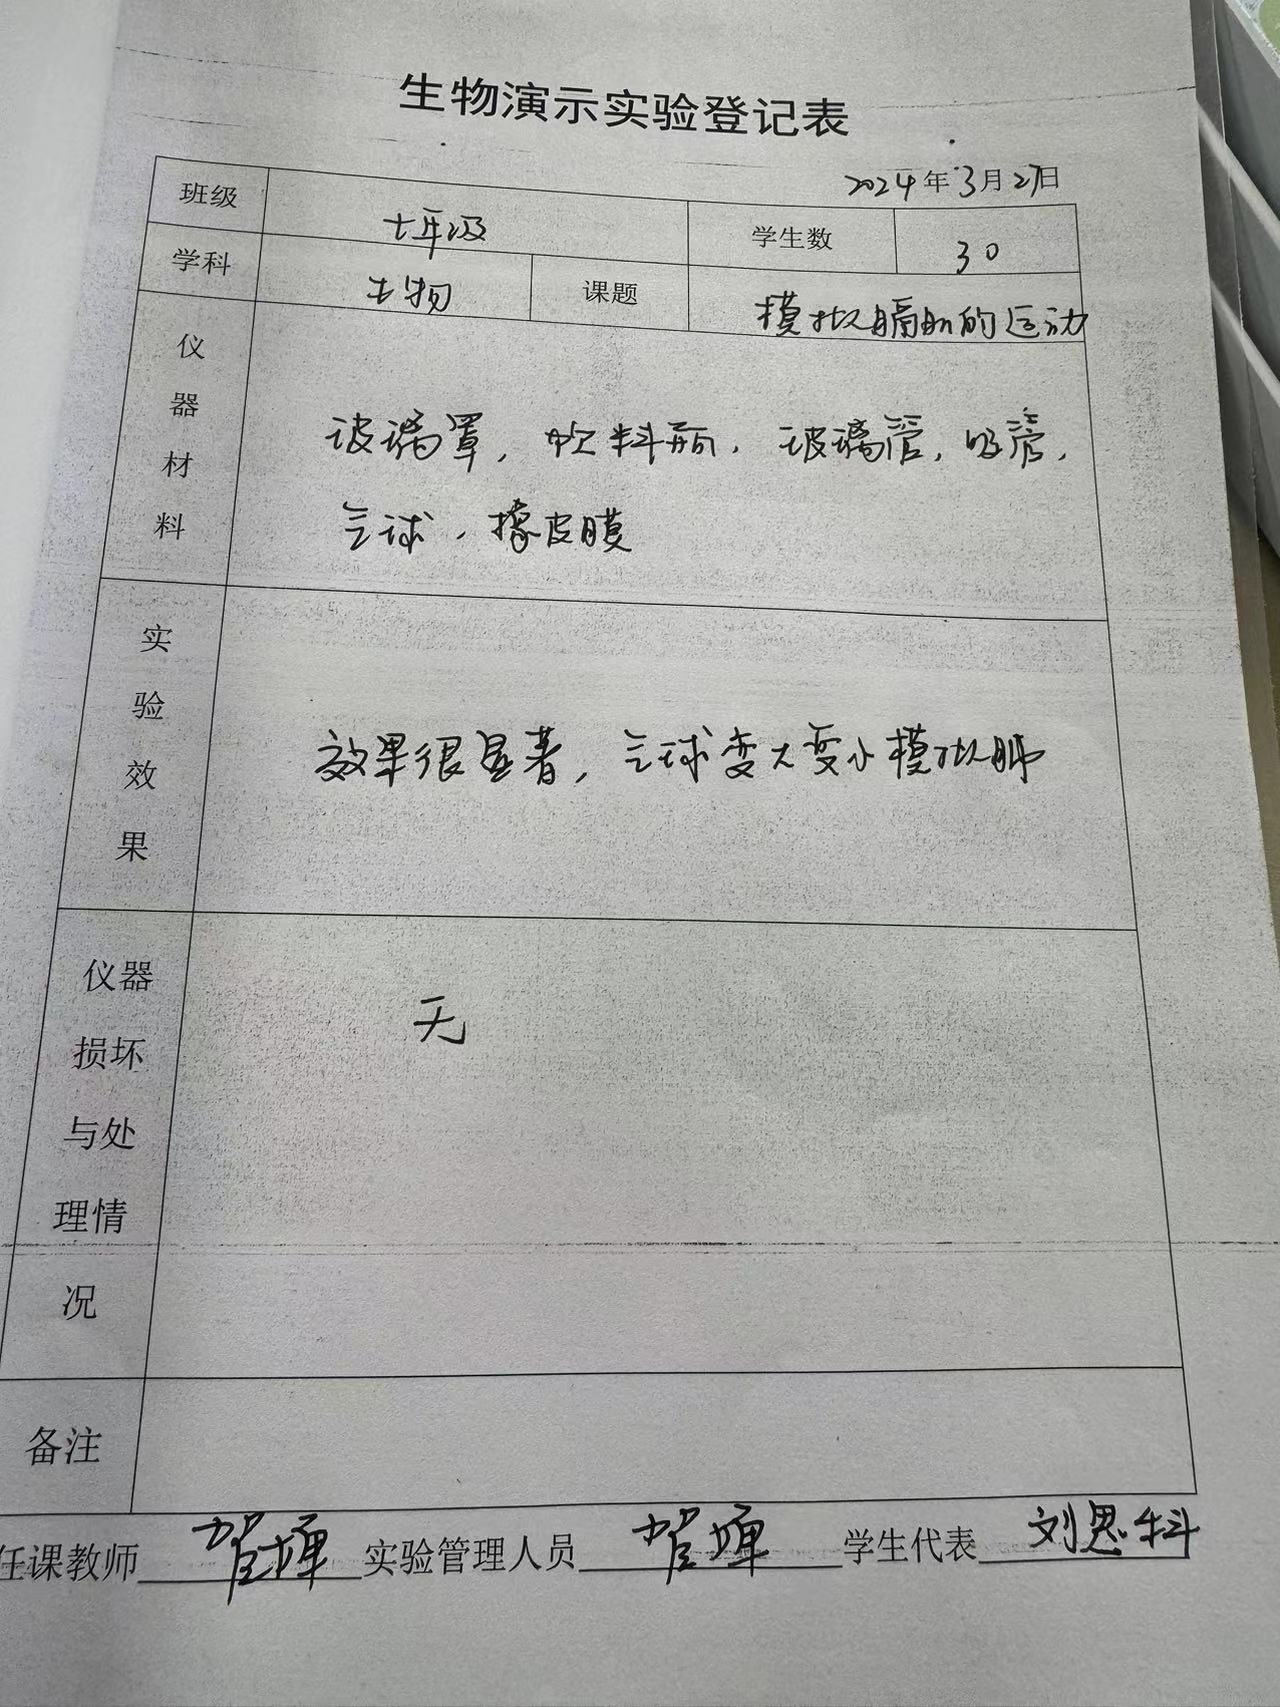 生物演示实验登记表
2024年3月27日
班级 七年级 学生数 30
学科 生物 课题 模拟膈肌的运动
仪器材料 玻璃罩，饮料瓶，玻璃管，吸管，
气球，橡皮膜
实验效果 效果很显著，气球变大变小模拟肺
仪器
损坏
与处
理情
况
无
备注
任课教师 实验管理人员 学生代表 刘思科